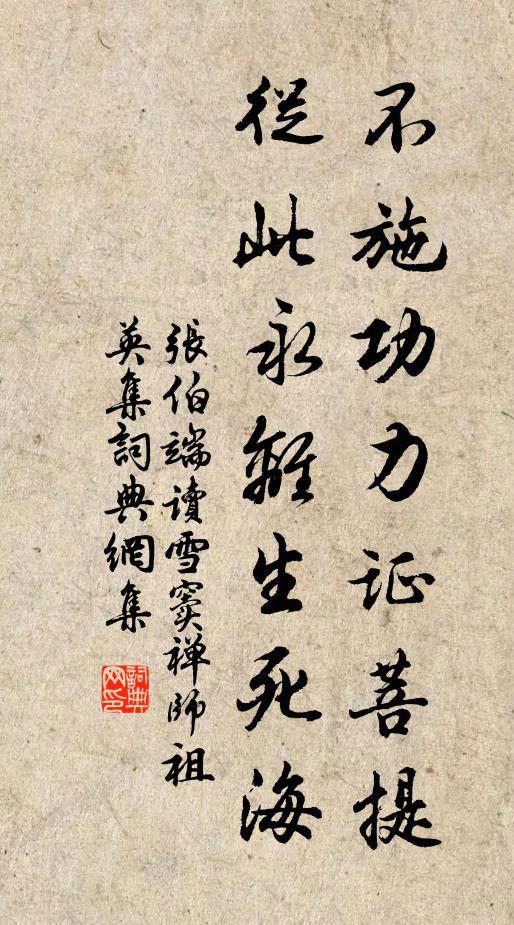 不施功力证菩提
從此永離生死海
張伯端讀雪竇禅師祖
英集詞典網集
詞典
网印